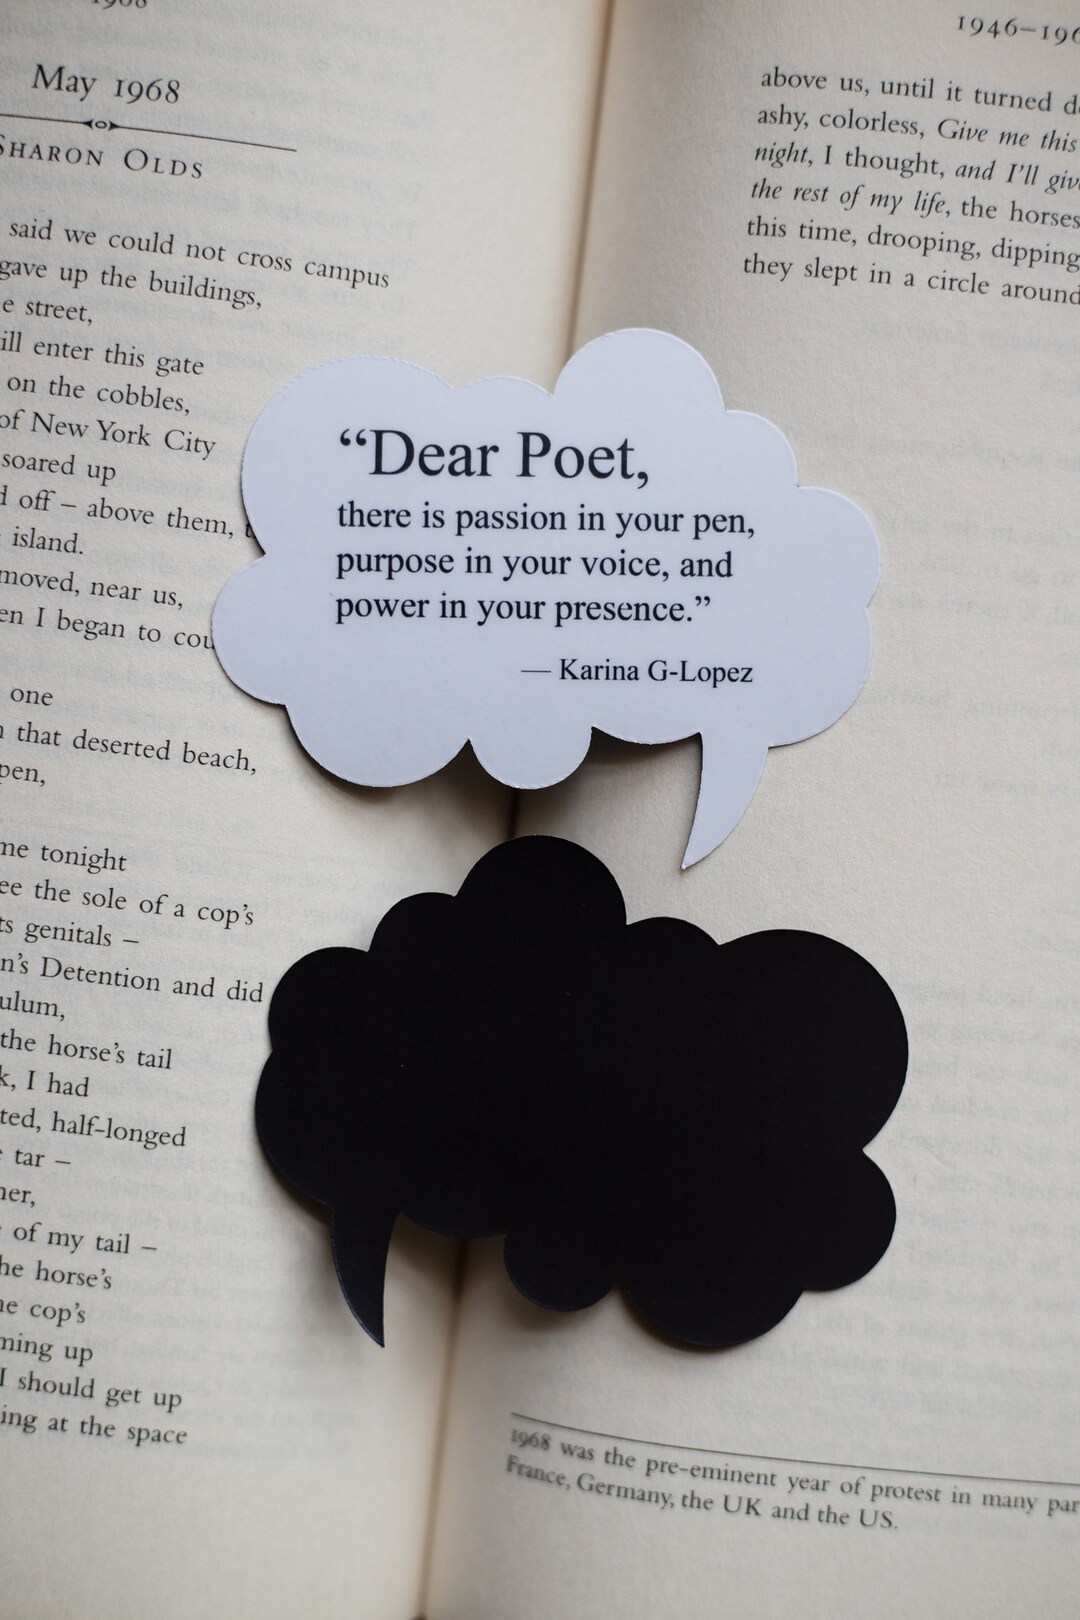 1908
May 1968
SHARON OLDS
said we could not cross campus
gave up the buildings,
e street,
ill enter this gate
on the cobbles,
of New York City
soared up
d off – above them, t
island.
moved, near us,
en I began to cou
one
that deserted beach,
pen,
me tonight
ee the sole of a cop's
ts genitals –
n's Detention and did
ulum,
the horse's tail
k, I had
ted, half-longed
tar –
ner,
of my tail –
he horse's
e cop's
ming up
I should get up
ing at the space
“Dear Poet,
there is passion in your pen,
purpose in your voice, and
power in your presence.”
— Karina G-Lopez
1946–196
above us, until it turned d
ashy, colorless, Give me this
night, I thought, and I'll giv
the rest of my life, the horses
this time, drooping, dipping
they slept in a circle around
1968 was the pre-eminent year of protest in many par
France, Germany, the UK and the US.